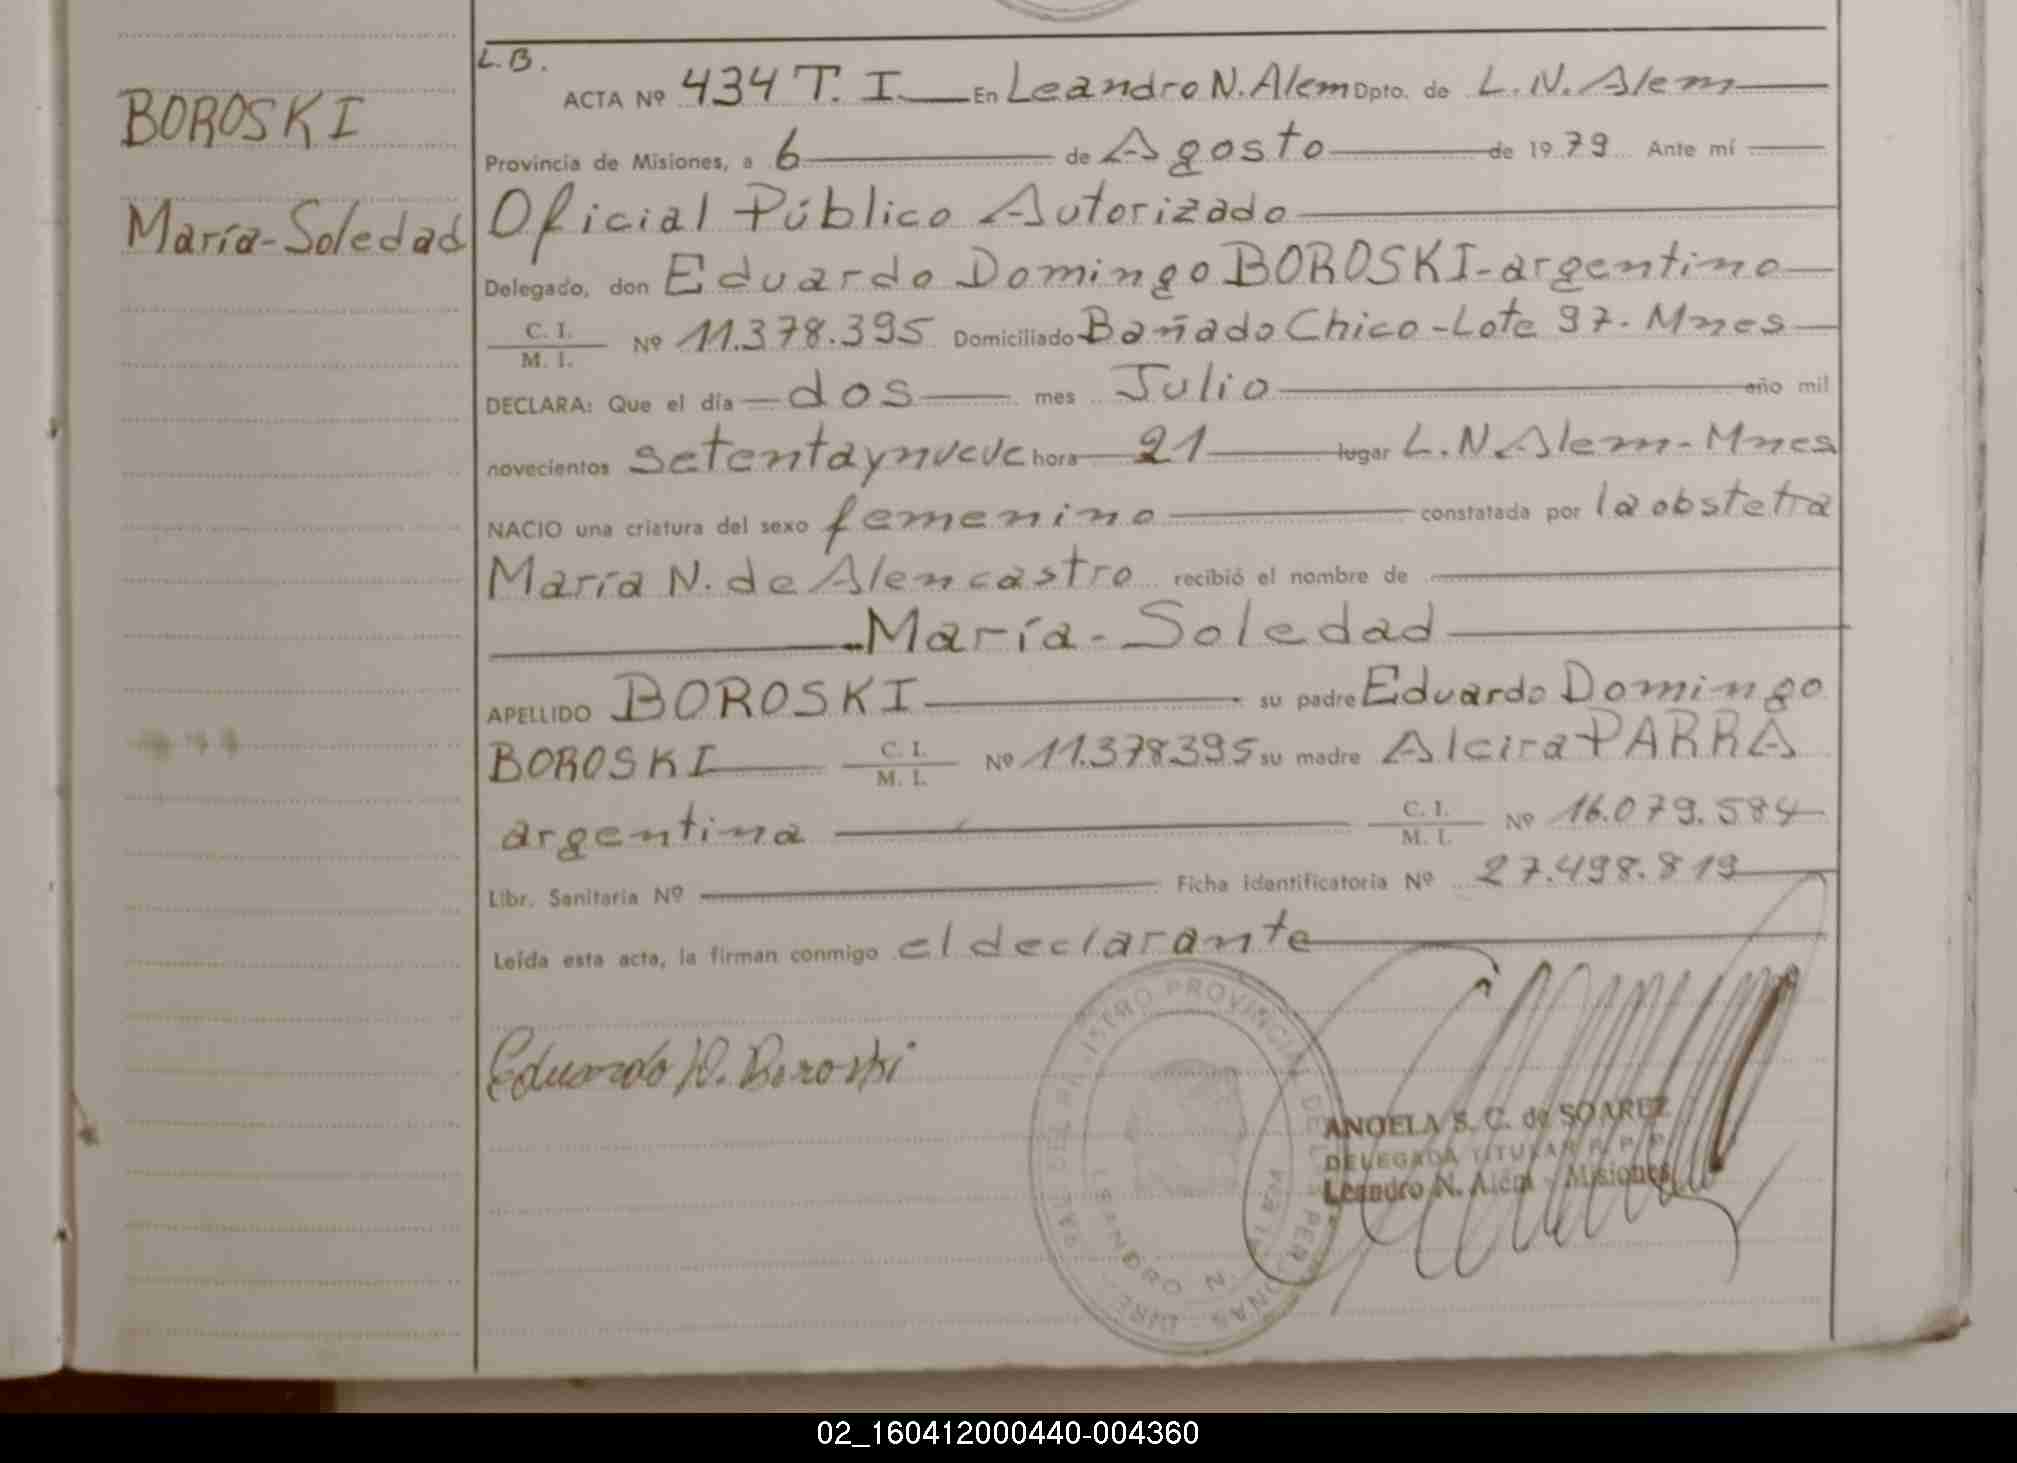 L.B.
ACTA Nº 434 T. I. En Leandro N. Alem Dpto. de L. N. Alem
BOROSKI
Provincia de Misiones, a 6 de Agosto de 1979 Ante mí
María-Soledad
Oficial Público Autorizado
Delegado, don Eduardo Domingo BOROSKI-argentino
C. I.
M. I. Nº 11.378.395 Domiciliado Bañado Chico-Lote 97. Mnes
DECLARA: Que el día dos mes Julio año mil
novecientos setentaynueve hora 21 lugar L. N. Alem-Mnes
NACIO una criatura del sexo femenino constatada por la obstetra
María N. de Alencastro recibió el nombre de
María-Soledad
APELLIDO BOROSKI su padre Eduardo Domingo
BOROSKI C. I. M. I. Nº 11.378395 su madre Alcira PARRA
argentina C. I. M. I. Nº 16.079.584
Libr. Sanitaria Nº Ficha identificatoria Nº 27.498.819
Leída esta acta, la firman conmigo el declarante
Eduardo D. Boroski
REGISTRO PROVINCIAL DE LAS PERSONAS
LEANDRO N. ALEM
ANGELA S. C. de SOAREZ
DELEGADA TITULAR R. P. P.
Leandro N. Alem - Misiones
02_160412000440-004360